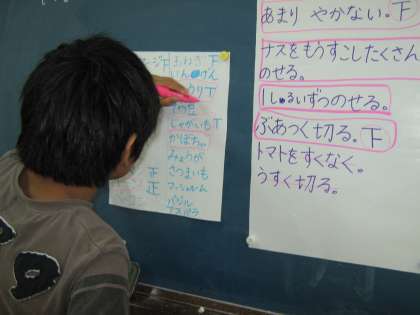 あまり やかない。下
ナスをもうすこしたくさん
のせる。
1しゅるいずつのせる。
ぶあつく切る。下
トマトをすくなく。
うすく切る。
玉ねぎ 下
いんげん
下
じゃがいも 下
かぼちゃ
みょうが
正 さつまいも
正 マッシュルーム
バジル
アスパラ